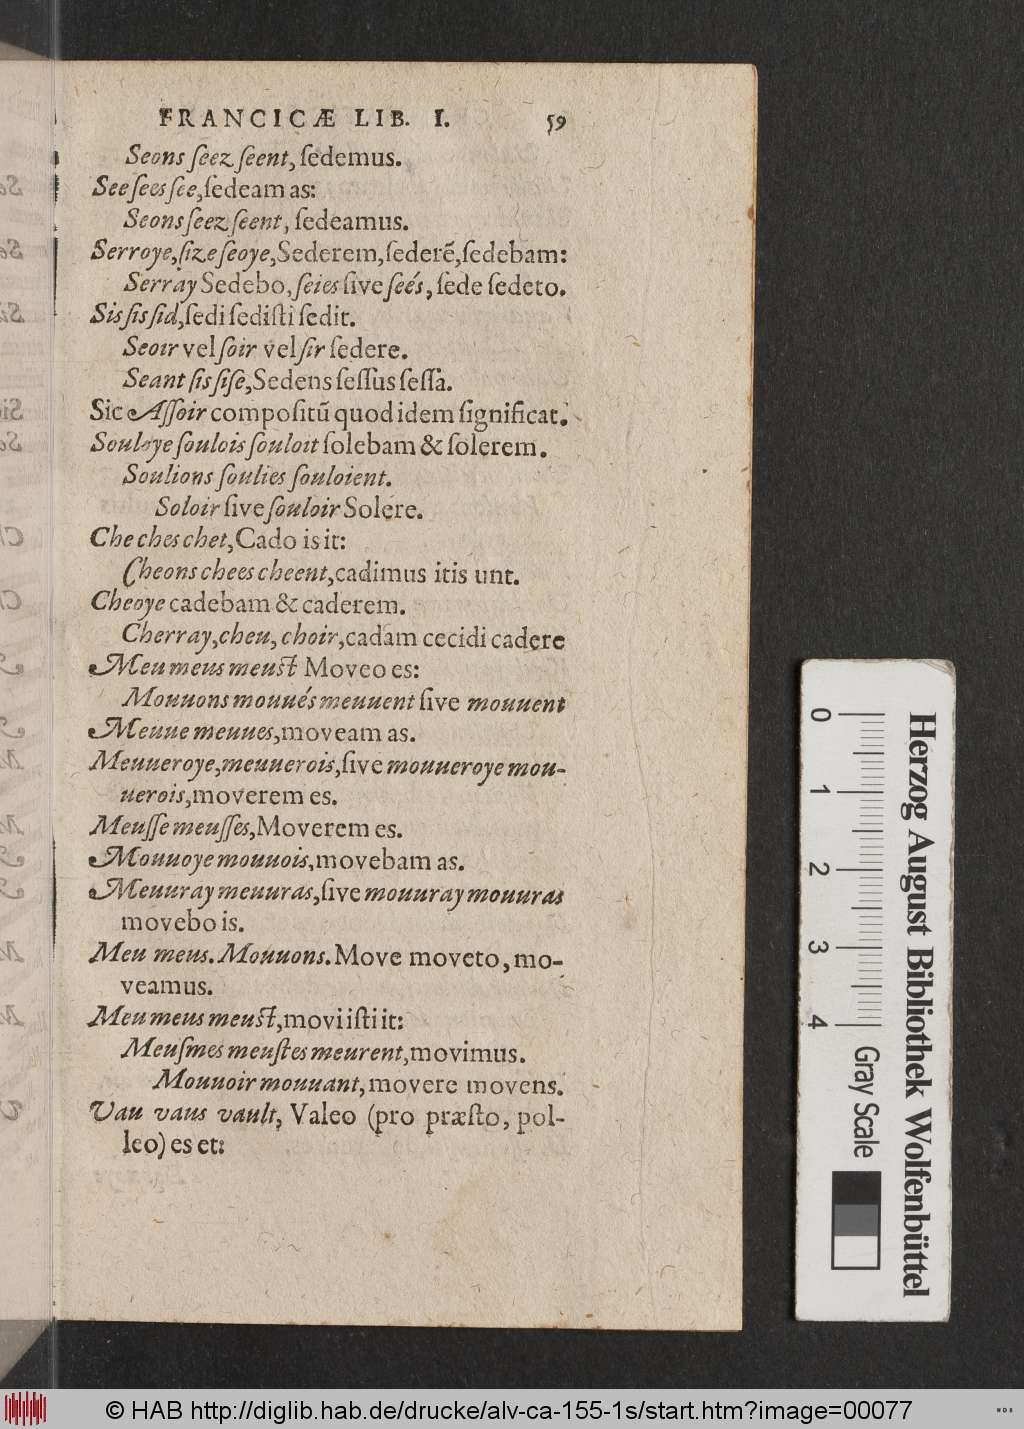 FRANCICÆ LIB. I. 59
Seons ſeez ſeent, ſedemus.
See ſees ſee, ſedeam as:
Seons ſeez ſeent, ſedeamus.
Serroye, ſize ſeoye, Sederem, ſederē, ſedebam:
Serray Sedebo, ſeies ſive ſeés, ſede ſedeto.
Sis ſis ſid, ſedi ſediſti ſedit.
Seoir vel ſoir vel ſir ſedere.
Seant ſis ſiſe, Sedens ſeſſus ſeſſa.
Sic Aſſoir compoſitū quod idem ſignificat.
Souloye ſoulois ſouloit ſolebam & ſolerem.
Soulions ſoulies ſouloient.
Soloir ſive ſouloir Solere.
Che ches chet, Cado is it:
Cheons chees cheent, cadimus itis unt.
Cheoye cadebam & caderem.
Cherray, cheu, choir, cadam cecidi cadere
Meu meus meuſt Moveo es:
Mouuons mouués meuuent ſive mouuent
Meuue meuues, moveam as.
Meuueroye, meuuerois, ſive mouueroye mou-
uerois, moverem es.
Meuſſe meuſſes, Moverem es.
Mouuoye mouuois, movebam as.
Meuuray meuuras, ſive mouuray mouuras
movebo is.
Meu meus. Mouuons. Move moveto, mo-
veamus.
Meu meus meuſt, movi iſti it:
Meuſmes meuſtes meurent, movimus.
Mouuoir mouuant, movere movens.
Vau vaus vault, Valeo (pro præſto, pol-
leo) es et:
0 1 2 3 4
Gray Scale
Herzog August Bibliothek Wolfenbüttel
© HAB http://diglib.hab.de/drucke/alv-ca-155-1s/start.htm?image=00077